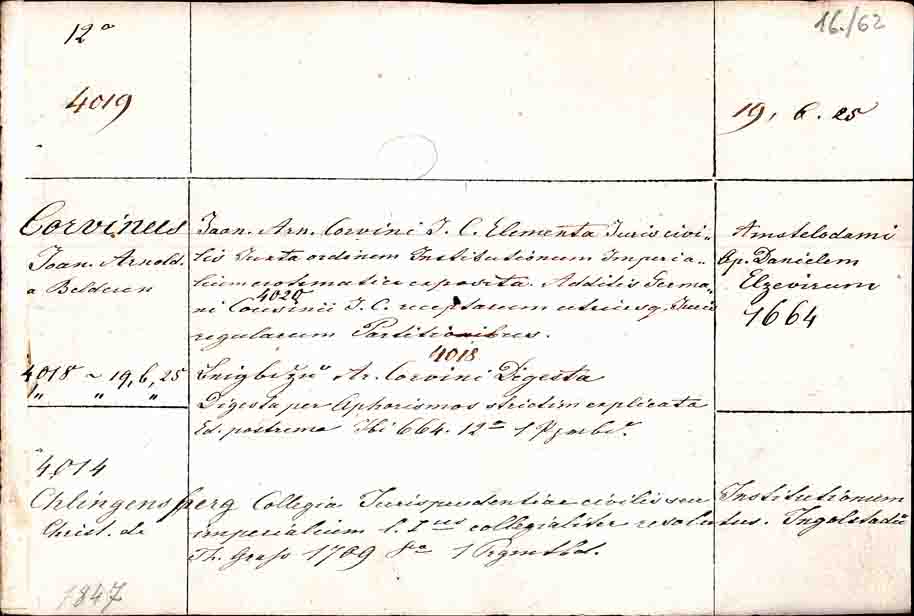 12º
16./62
4019
19, 6. 25
Corvinus
Joan. Arnold.
a Belderen
Joan. Arn. Corvini J. C. Elementa Juris civi-
lis Juxta ordinem Institutionum Imperia-
lium erotematice exposita. Additis Germa-
4020
ni Cousinii J. C. receptarum utriusq. Juris
regularum Partitionibus.
Amstelodami
Ap. Danielem
Elzevirum
1664
4018 ~ 19, 6, 25
" " "
4018
Ar. Corvini Digesta
Digesta per Aphorismos strictim explicata
Ed. postrema Ibi 664. 12º 1
4014
Chlingensperg
Christ. de
Collegia Jurisprudentiae civilis seu Institutionum
imperialium l. Ius collegialiter resolutus. Ingolstadii
Th. Grass 1709 8º 1
1847